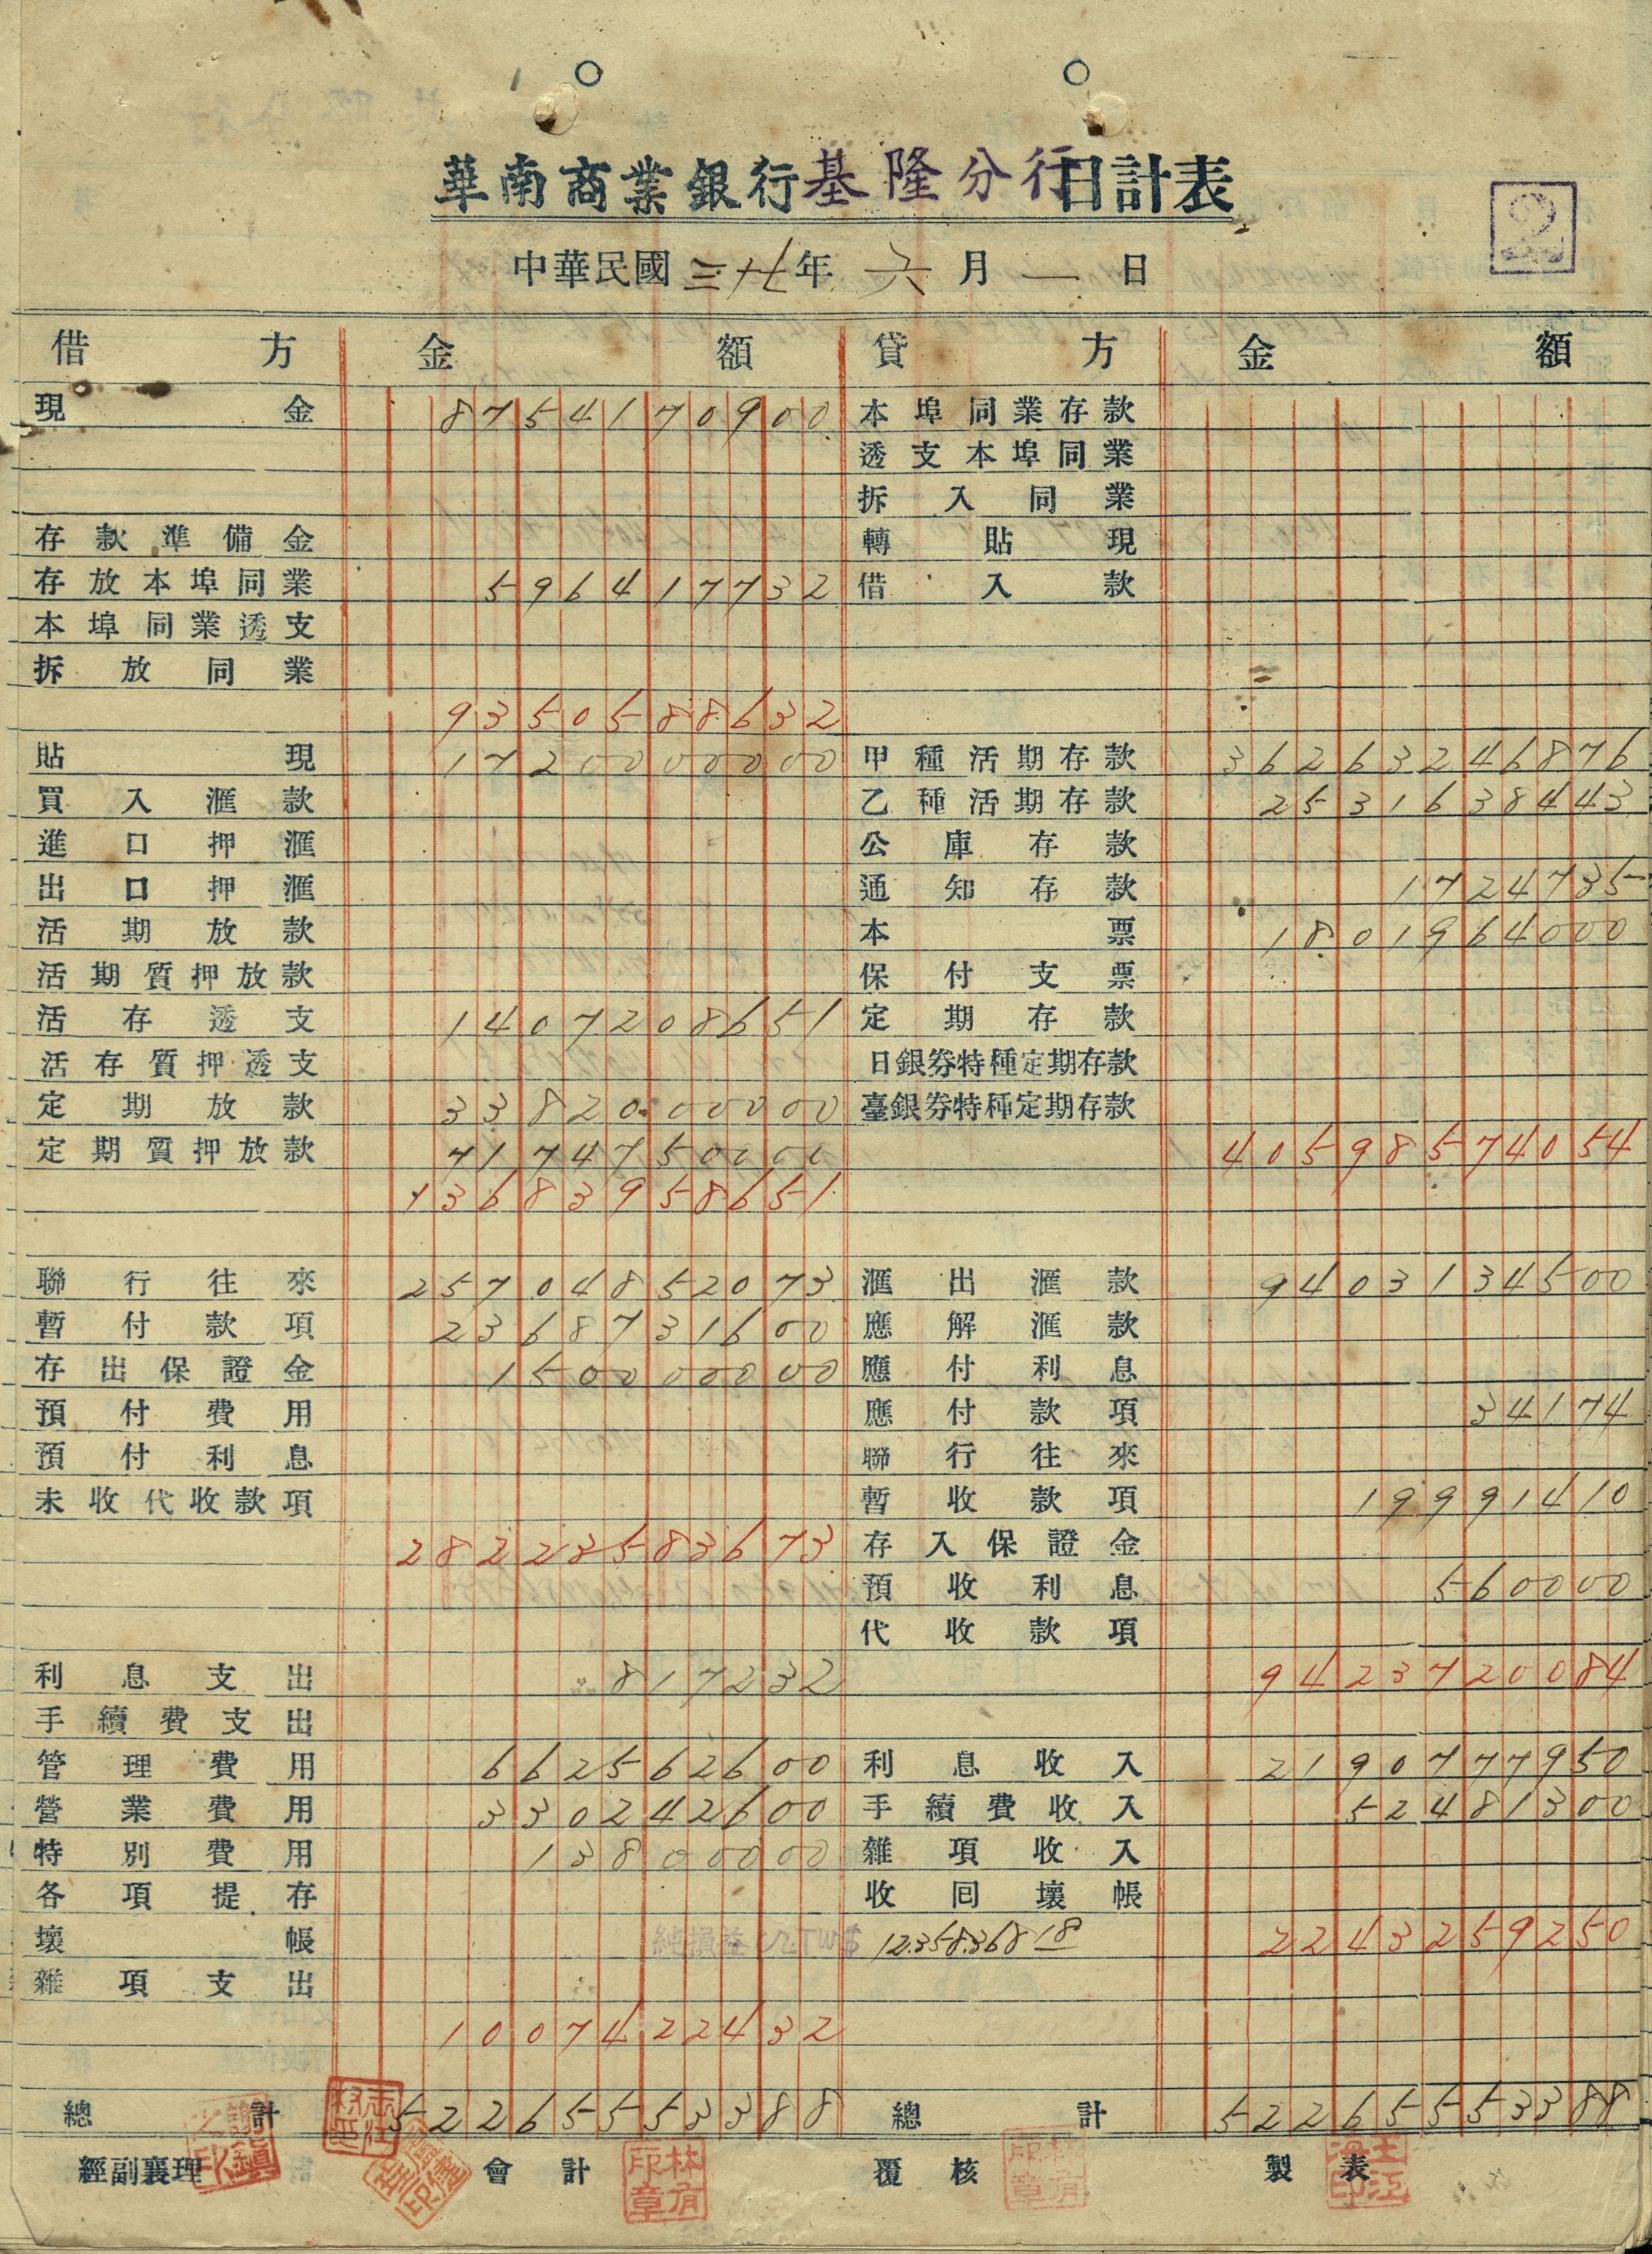 華南商業銀行基隆分行日計表
2
中華民國三十七年六月一日
借方 金額 貸方 金額
現金 8754170900 本埠同業存款
透支本埠同業
拆入同業
存款準備金 轉貼現
存放本埠同業 596417732 借入款
本埠同業透支
拆放同業
9350588632
貼現 1720000000 甲種活期存款 36263246876
買入滙款 乙種活期存款 2531638443
進口押滙 公庫存款
出口押滙 通知存款 1724735
活期放款 本票 1801964000
活期質押放款 保付支票
活存透支 1407208651 定期存款
活存質押透支 日銀券特種定期存款
定期放款 3382000000 臺銀券特種定期存款
定期質押放款 7174750000 40598574054
13683958651
聯行往來 25704852073 滙出滙款 9403134500
暫付款項 2368731600 應解滙款
存出保證金 150000000 應付利息
預付費用 應付款項 34174
預付利息 聯行往來
未收代收款項 暫收款項 19991410
28223583673 存入保證金
預收利息 560000
代收款項
利息支出 817232 9423720084
手續費支出
管理費用 662562600 利息收入 2190777950
營業費用 330242600 手續費收入 52481300
特別費用 13800000 雜項收入
各項提存 收回壞帳
壞帳 純損益 TW$ 12.358.368 18 2243259250
雜項支出
1007422432
總計 52265553388 總計 52265553388
經副襄理 會計 覆核 製表